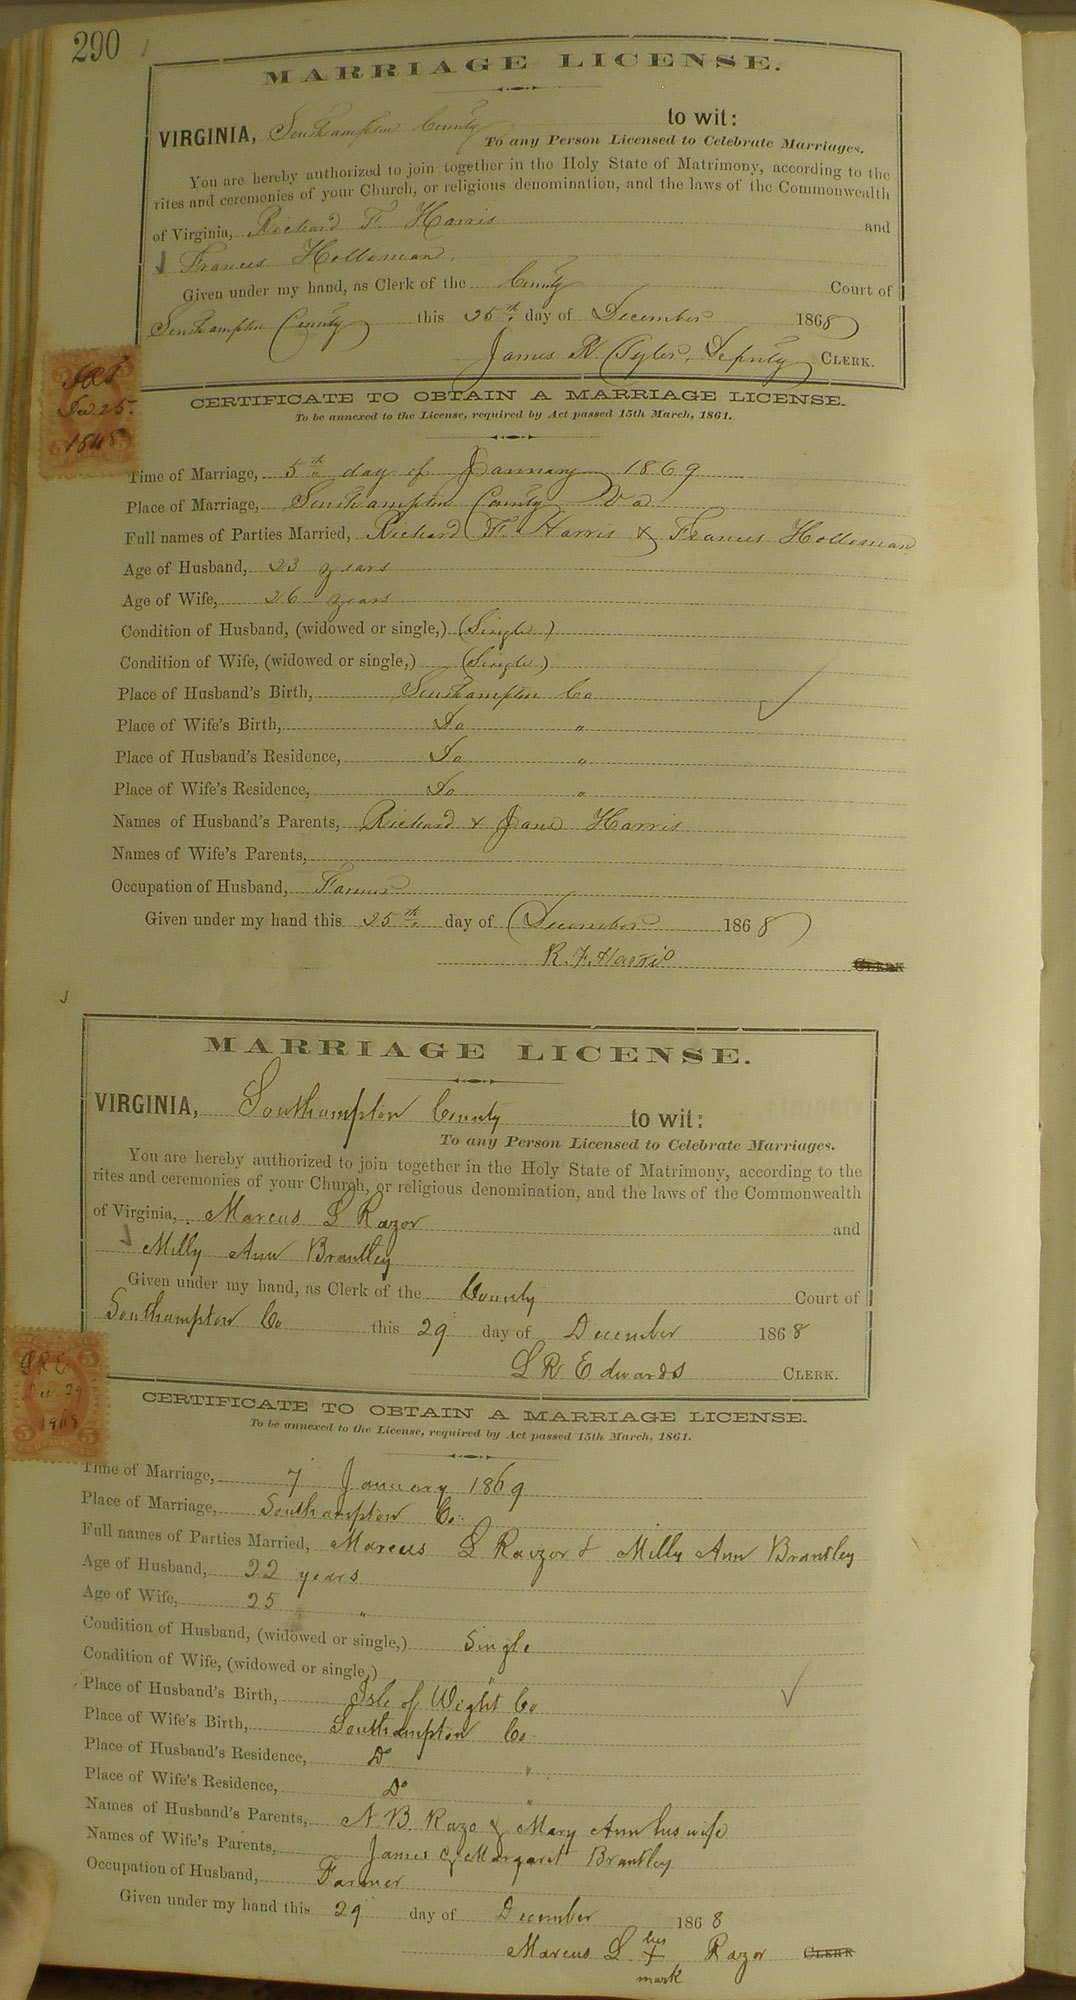 290
MARRIAGE LICENSE.
VIRGINIA, Southampton County to wit:
To any Person Licensed to Celebrate Marriages.
You are hereby authorized to join together in the Holy State of Matrimony, according to the
rites and ceremonies of your Church, or religious denomination, and the laws of the Commonwealth
of Virginia, Richard F. Harris and
Frances Holloman.
Given under my hand, as Clerk of the County Court of
Southampton County this 25th day of December 1868
James R. Tyler, Deputy CLERK.
Dec. 25.
1868
CERTIFICATE TO OBTAIN A MARRIAGE LICENSE.
To be annexed to the License, required by Act passed 15th March, 1861.
Time of Marriage, 5th day of January 1869
Place of Marriage, Southampton County Va
Full names of Parties Married, Richard F. Harris & Frances Holloman
Age of Husband, 23 years
Age of Wife, 26 years
Condition of Husband, (widowed or single,) (Single)
Condition of Wife, (widowed or single,) (Single)
Place of Husband's Birth, Southampton Co
Place of Wife's Birth, Do "
Place of Husband's Residence, Do "
Place of Wife's Residence, Do "
Names of Husband's Parents, Richard & Jane Harris
Names of Wife's Parents,
Occupation of Husband, Farmer
Given under my hand this 25th day of December 1868
R. F. Harris CLERK
MARRIAGE LICENSE.
VIRGINIA, Southampton County to wit:
To any Person Licensed to Celebrate Marriages.
You are hereby authorized to join together in the Holy State of Matrimony, according to the
rites and ceremonies of your Church, or religious denomination, and the laws of the Commonwealth
of Virginia, Marcus L Razor and
Milly Ann Brantley
Given under my hand, as Clerk of the County Court of
Southampton Co this 29 day of December 1868
L R Edwards CLERK.
LRE
Dec. 29
1868
CERTIFICATE TO OBTAIN A MARRIAGE LICENSE.
To be annexed to the License, required by Act passed 15th March, 1861.
Time of Marriage, 7 January 1869
Place of Marriage, Southampton Co.
Full names of Parties Married, Marcus L Raizor & Milly Ann Brantley
Age of Husband, 22 years
Age of Wife, 25 "
Condition of Husband, (widowed or single,) Single
Condition of Wife, (widowed or single,) "
Place of Husband's Birth, Isle of Wight Co
Place of Wife's Birth, Southampton Co.
Place of Husband's Residence, Do "
Place of Wife's Residence, Do "
Names of Husband's Parents, N. B. Razo & Mary Ann his wife
Names of Wife's Parents, James & Margaret Brantley
Occupation of Husband, Farmer
Given under my hand this 29 day of December 1868
his
Marcus L. X Razor CLERK
mark